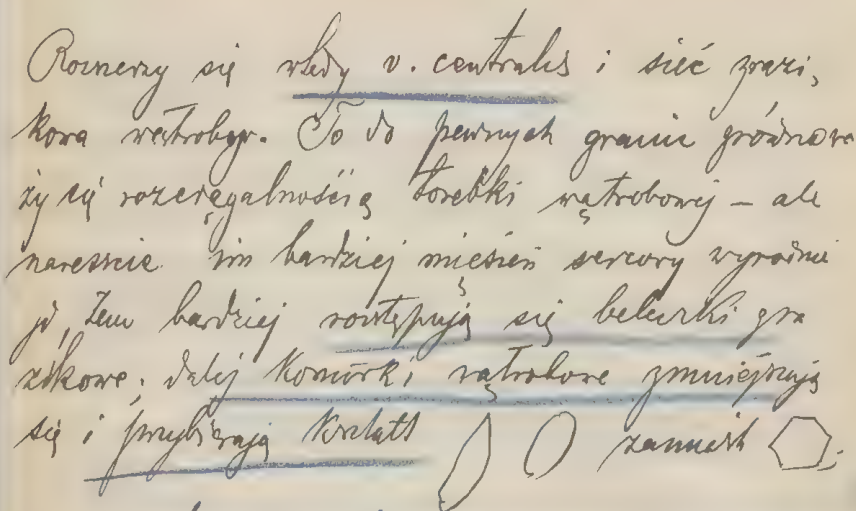 Rozszerzy się wtedy v. centralis i sieć zrazi-
kowa wątroby. To do pewnych granic równowa
ży się rozciągalnością torebki wątrobowej – ale
nareszcie im bardziej mięsień sercowy
tem bardziej rozstępują się beleczki zra
zikowe, dalej komórki wątrobowe zmniejszają
się i przybierają kształt zamiast